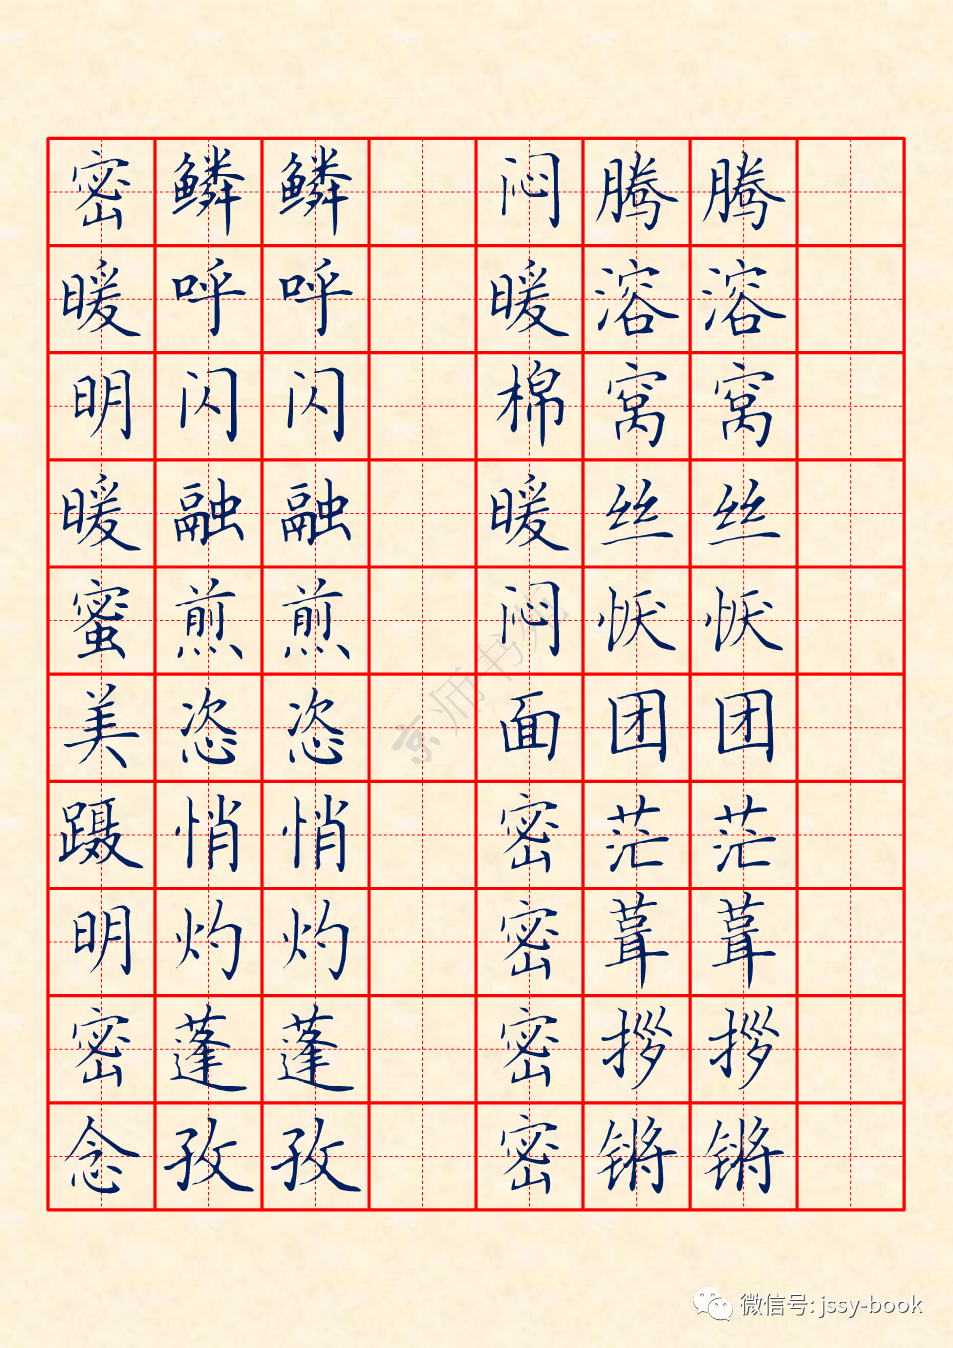 密鳞鳞 闷腾腾
暖呼呼 暖溶溶
明闪闪 棉窝窝
暖融融 暖丝丝
蜜煎煎 闷恹恹
美恣恣 面团团
蹑悄悄 密茫茫
明灼灼 密葺葺
密蓬蓬 密拶拶
念孜孜 密锵锵
京师书苑
微信号: jssy-book